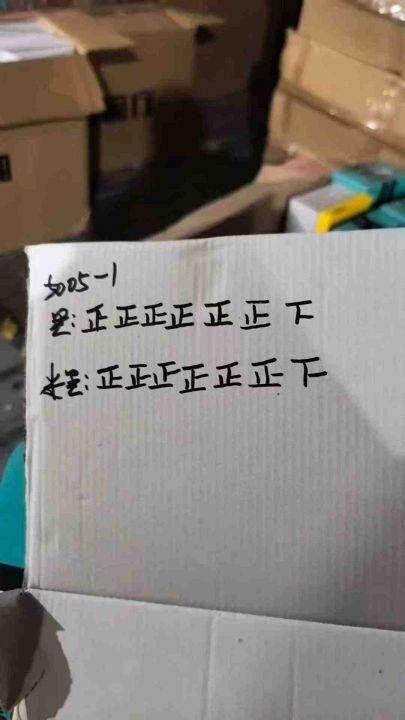 5005-1
黑:正正正正正正下
米黑:正正正正正正下